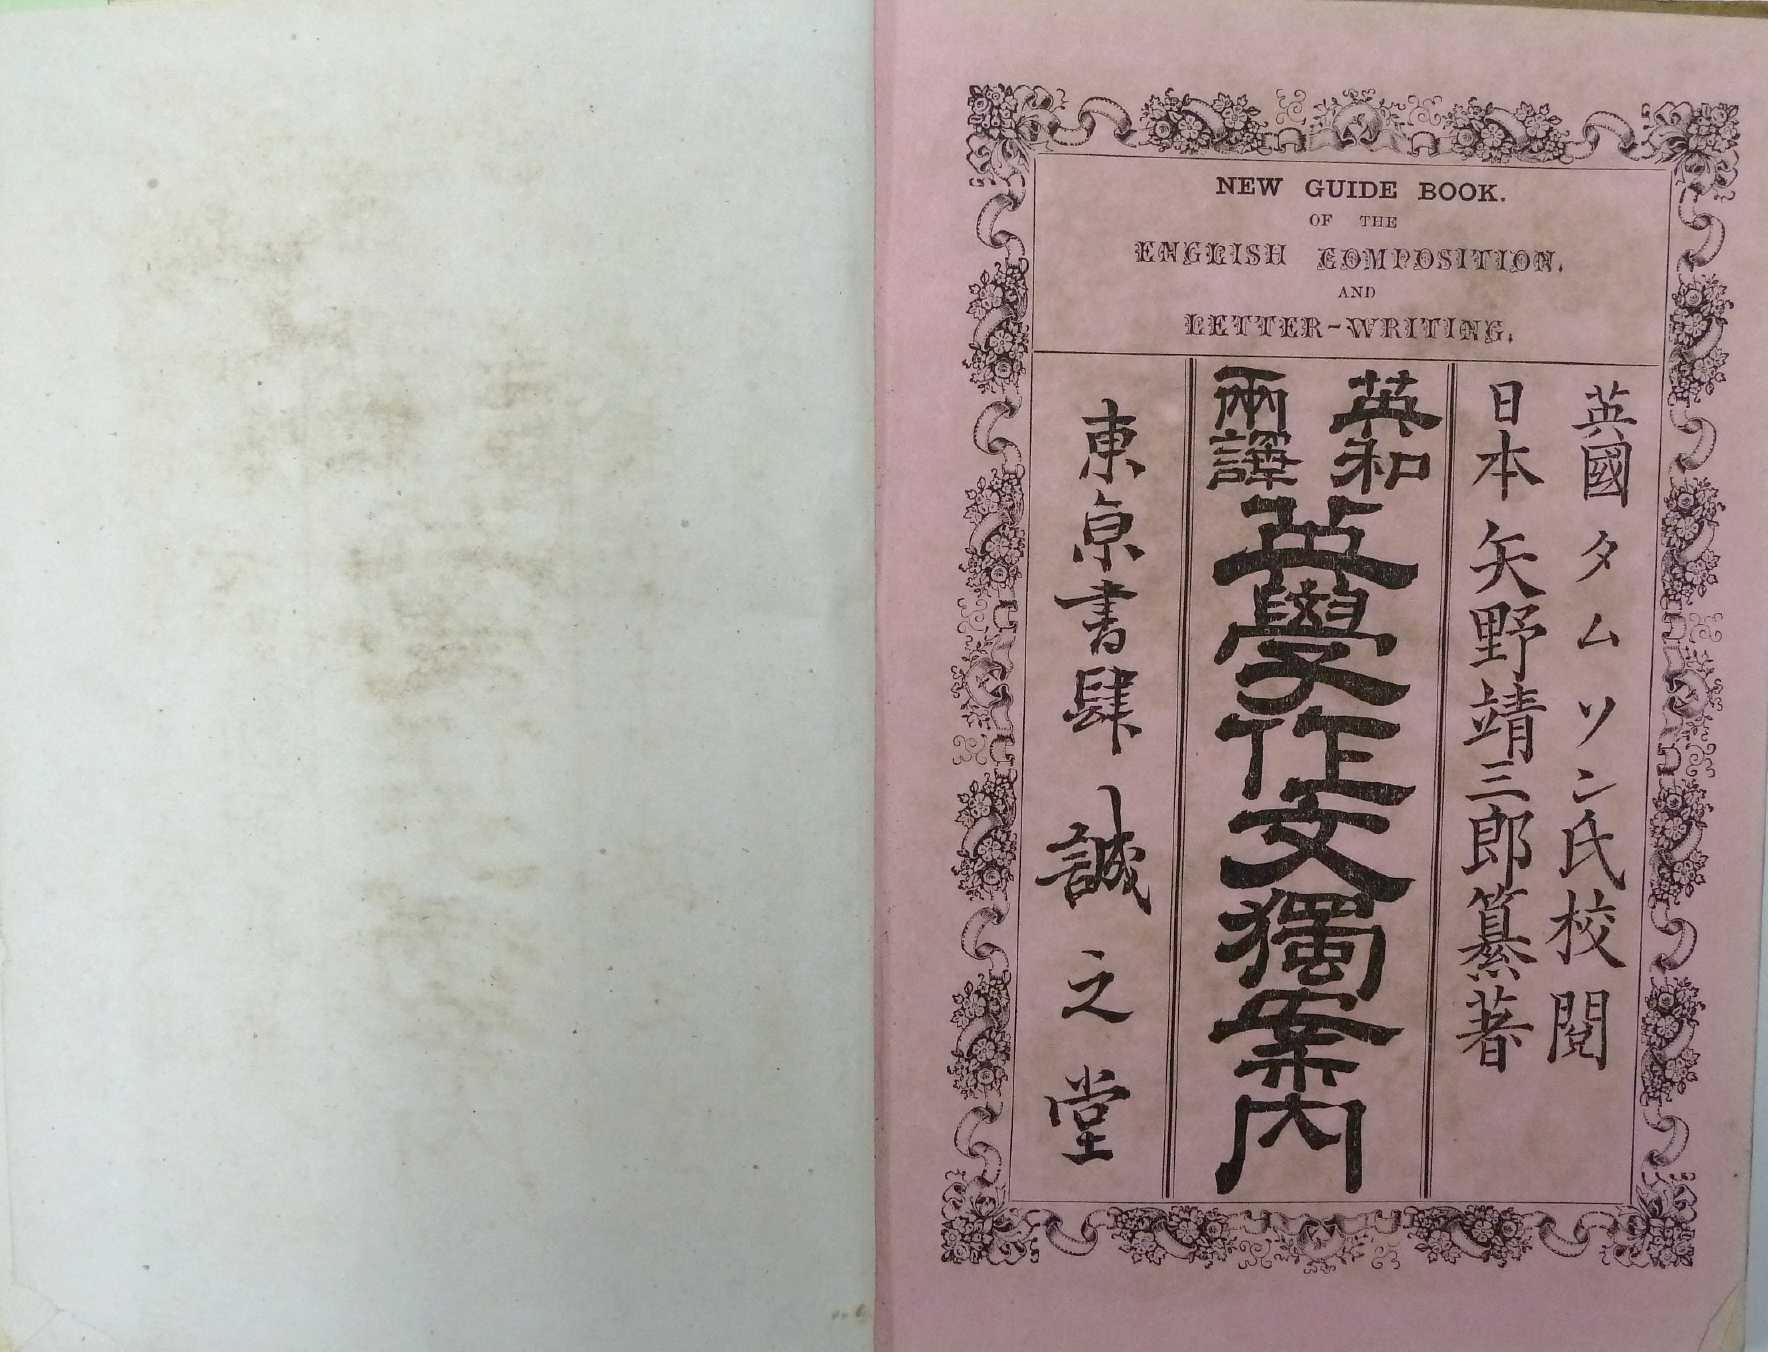 NEW GUIDE BOOK.
OF THE
ENGLISH COMPOSITION.
AND
LETTER-WRITING.
英國タムソン氏校閲
日本矢野靖三郎纂著
英和
兩譯
英學作文獨案内
東京書肆 誠之堂